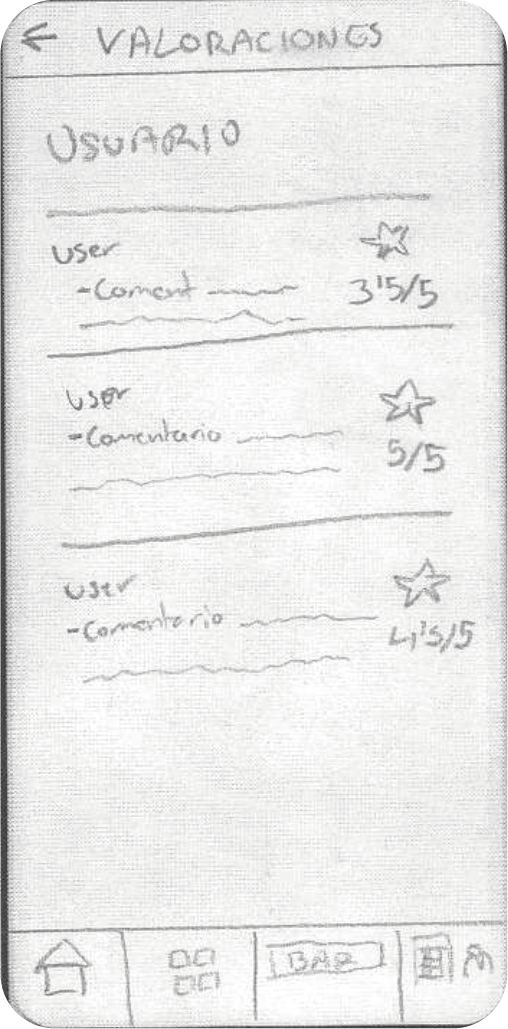 VALORACIONES
USUARIO
user
-Coment
3'5/5
user
-Comentario
5/5
user
-Comentario
4'5/5
BAR